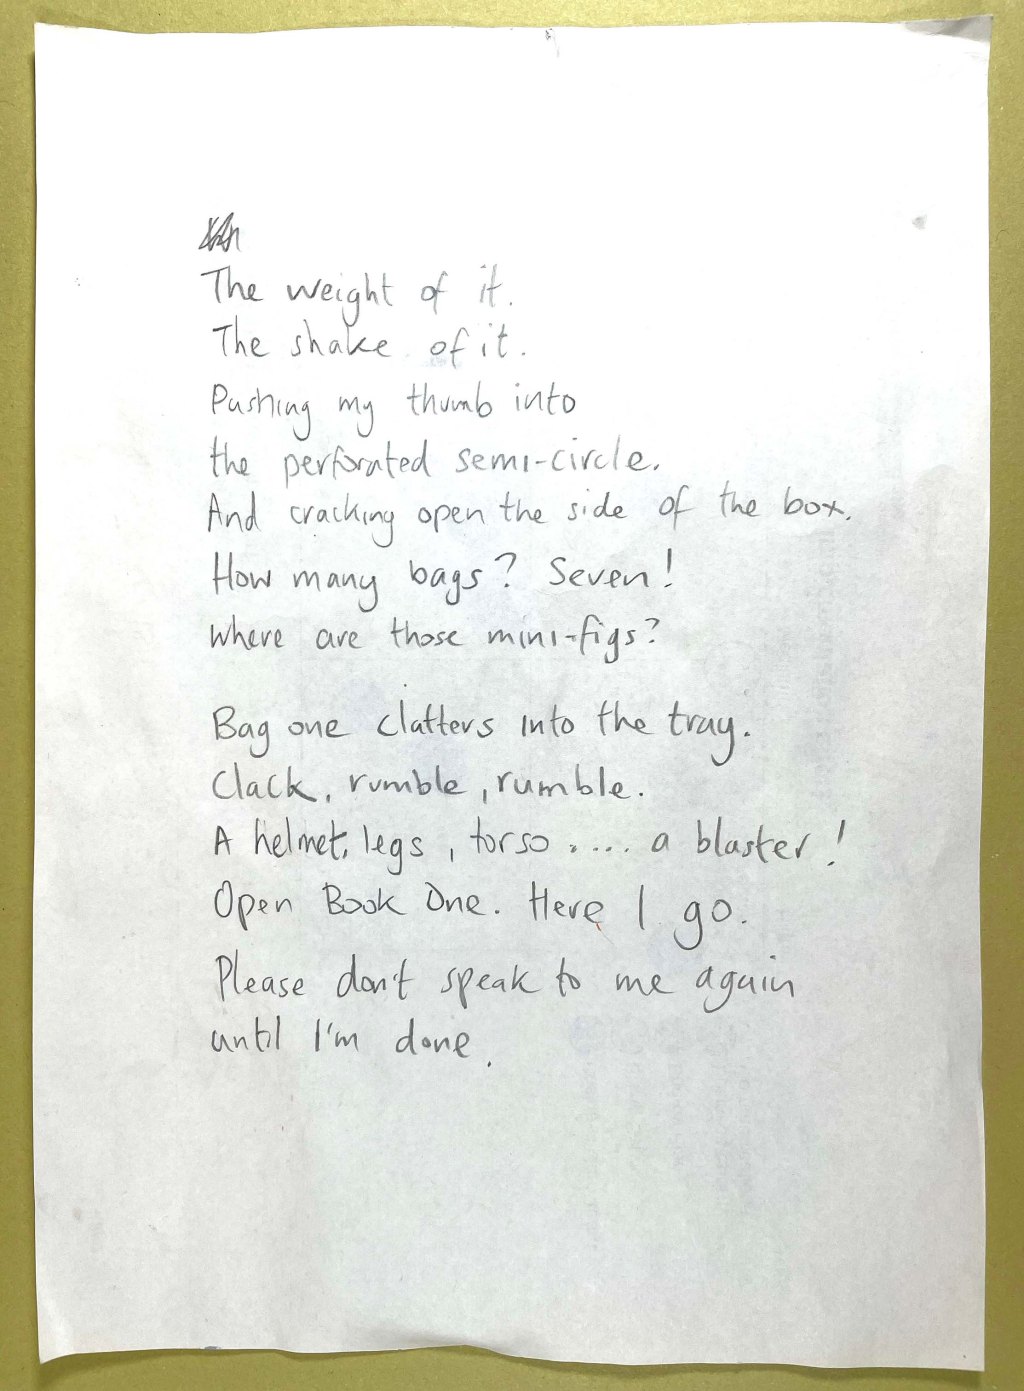 The weight of it.
The shake of it.
Pushing my thumb into
the perforated semi-circle.
And cracking open the side of the box.
How many bags? Seven!
Where are those mini-figs?
Bag one clatters into the tray.
Clack, rumble, rumble.
A helmet, legs, torso .... a blaster!
Open Book One. Here I go.
Please don't speak to me again
until I'm done.